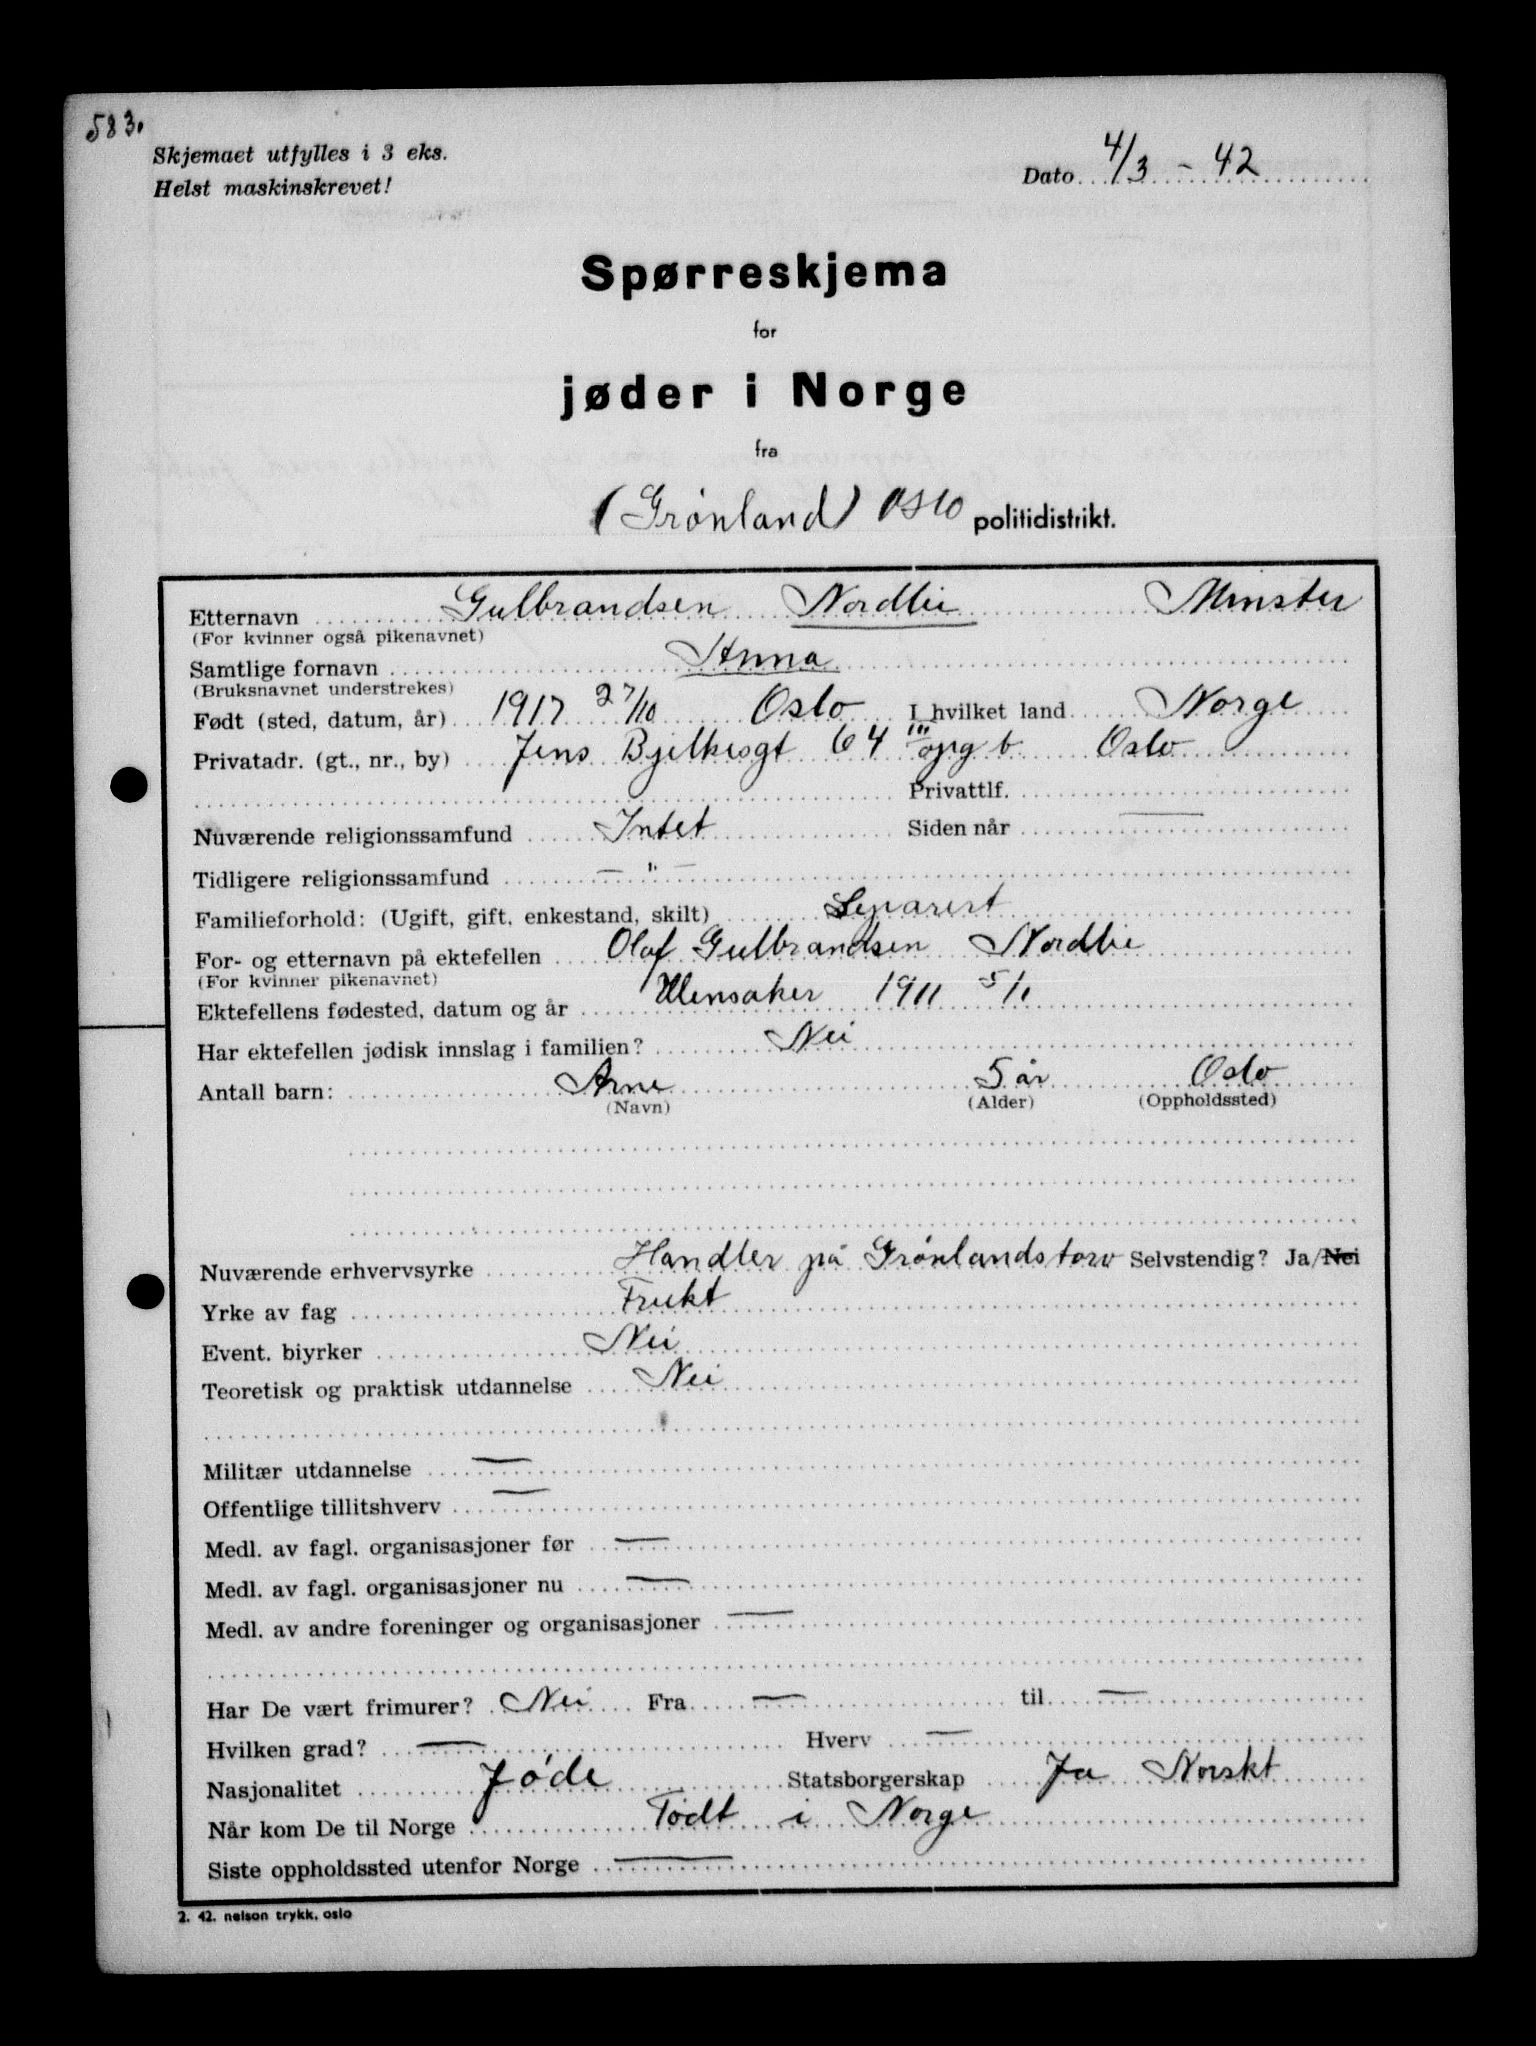 583.
Skjemaet utfylles i 3 eks.
Helst maskinskrevet!
Dato 4/3 - 42
Spørreskjema
for
jøder i Norge
fra
(Grønland) Oslo politidistrikt.
Etternavn Gulbrandsen Nordlie Minster
(For kvinner også pikenavnet)
Samtlige fornavn Anna
(Bruksnavnet understrekes)
Født (sted, datum, år) 1917 27/10 Oslo I hvilket land Norge
Privatadr. (gt., nr., by) Jens Bjelkesgt 64 III opg b. Oslo
Privattlf.
Nuværende religionssamfund Intet Siden når —
Tidligere religionssamfund — " —
Familieforhold: (Ugift, gift, enkestand, skilt) Separert
For- og etternavn på ektefellen Olaf Gulbrandsen Nordlie
(For kvinner pikenavnet)
Ektefellens fødested, datum og år Ullensaker 1911 5/1
Har ektefellen jødisk innslag i familien? Nei
Antall barn: Arne 5 år Oslo
(Navn) (Alder) (Oppholdssted)
Nuværende erhvervsyrke Handler på Grønlandstorv Selvstendig? Ja/Nei
Yrke av fag Frukt
Event. biyrker Nei
Teoretisk og praktisk utdannelse Nei
Militær utdannelse —
Offentlige tillitshverv —
Medl. av fagl. organisasjoner før —
Medl. av fagl. organisasjoner nu —
Medl. av andre foreninger og organisasjoner —
Har De vært frimurer? Nei Fra — til —
Hvilken grad? — Hverv —
Nasjonalitet Jøde Statsborgerskap Ja Norskt
Når kom De til Norge Født i Norge
Siste oppholdssted utenfor Norge —
2. 42. nelson trykk, oslo